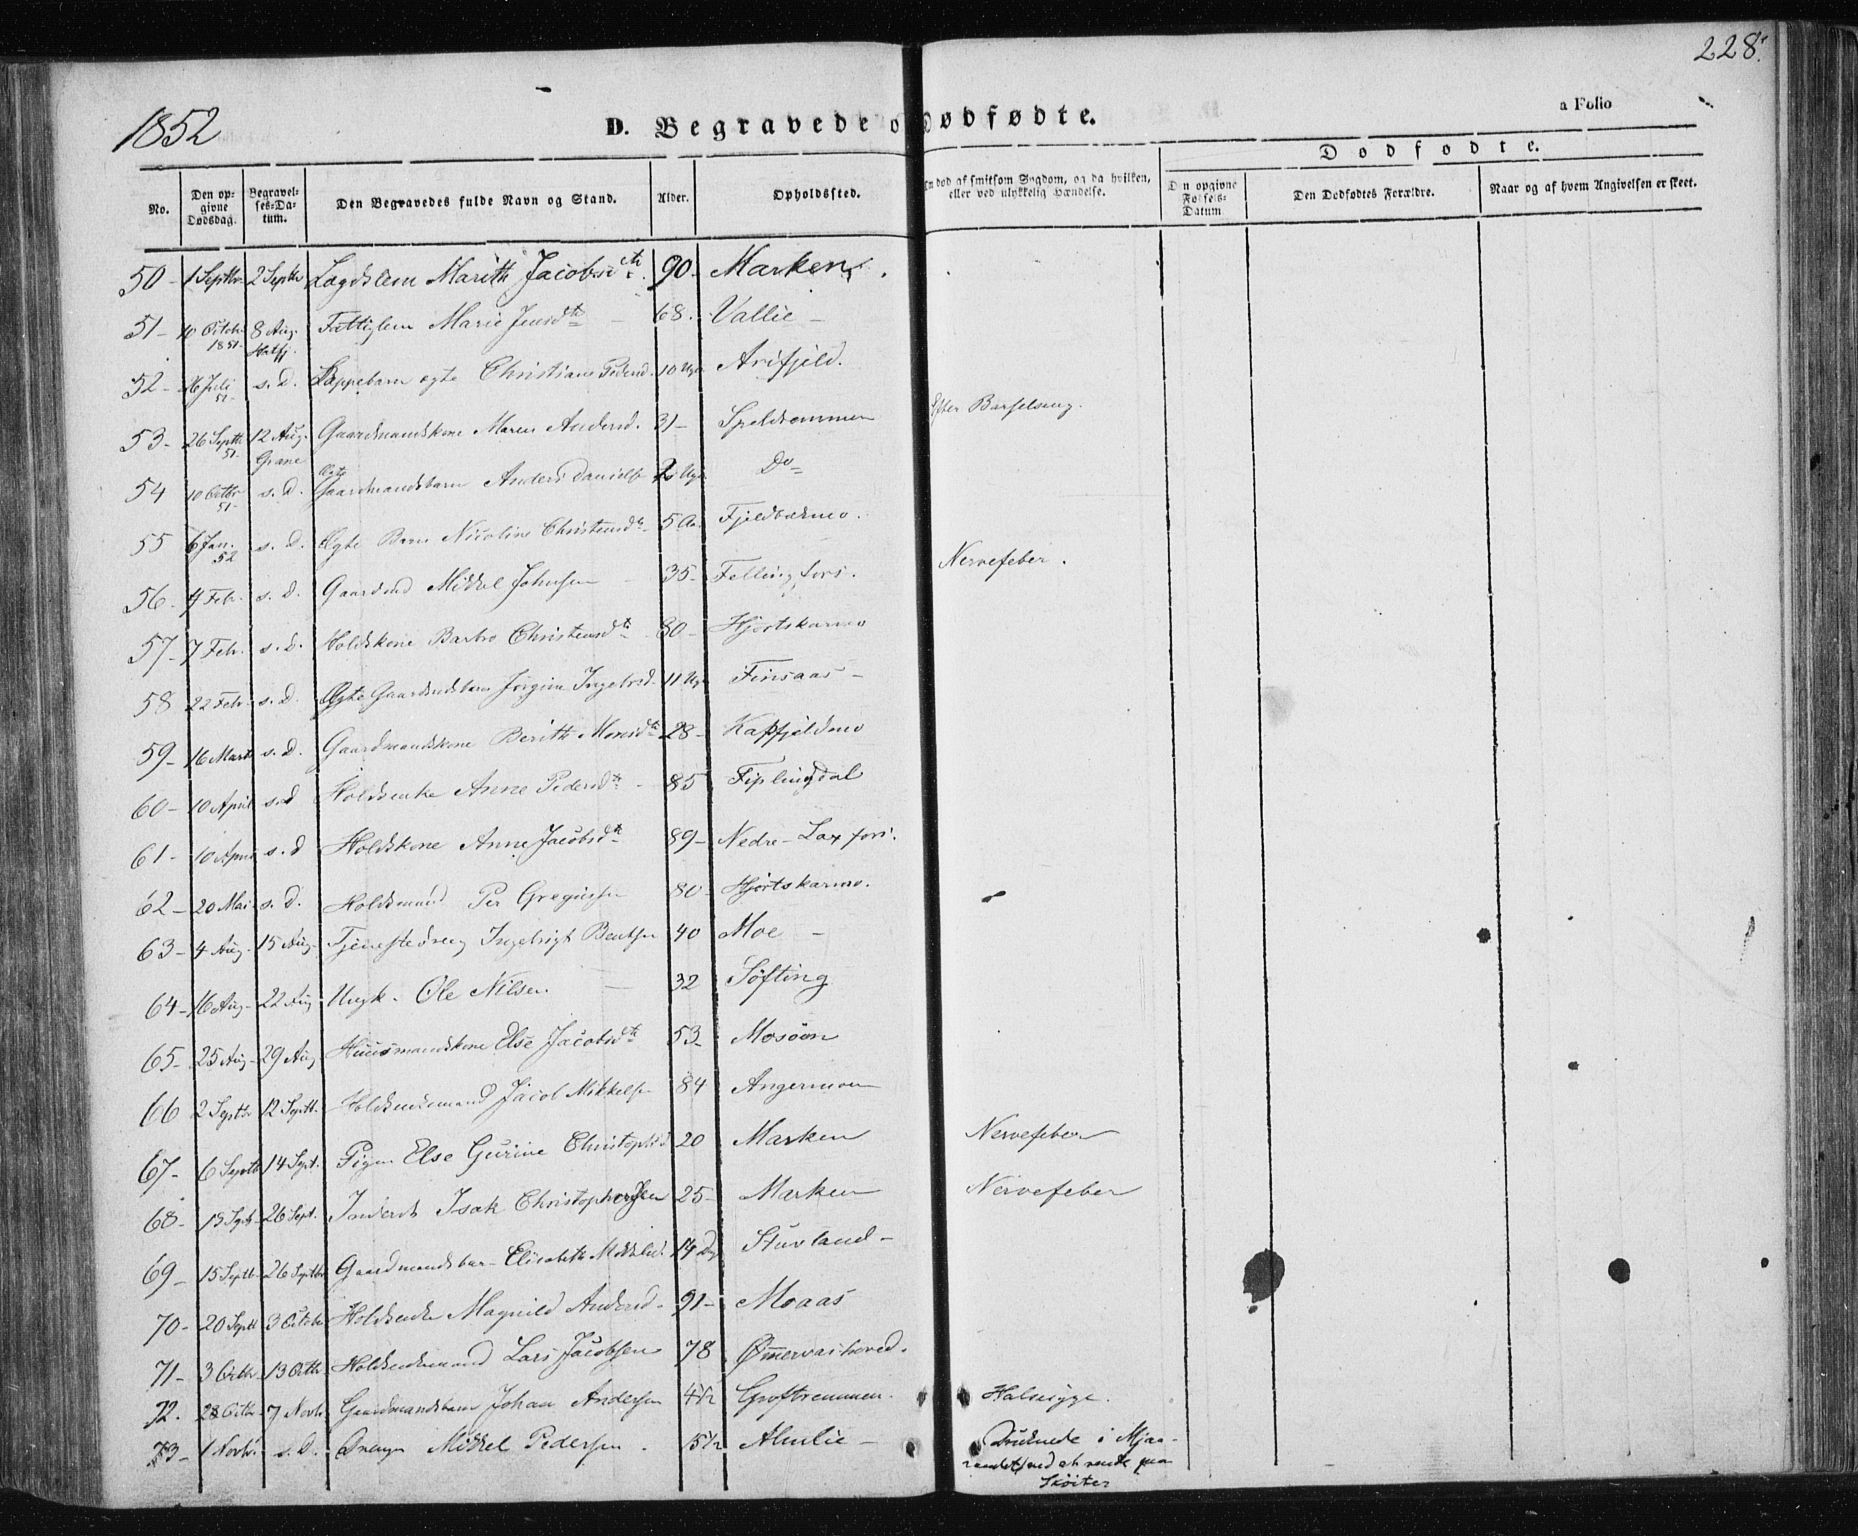 228.
1852
D. Begravede o Dødfødte.
a Folio
Dødfødte.
No.
Den opgivne Dødsdag.
Begravelses-Datum.
Den Begravedes fulde Navn og Stand.
Alder.
Opholdssted.
en død af smitsom Sygdom, og da hvilken, eller ved ulykkelig Hændelse.
Den opgivne Fødsels-Datum
Den Dødfødtes Forældre.
Naar og af hvem Angivelsen er skeet.
50 - 1 Septbr 2 Septbr Lægdslem Marith Jacobsdtr. 90 - Marken.
51 - 10 Octobr 1851 - 8 Aug. Hatfj. Fattiglem Marie Jensdtr - 68. Vallie -
52 - 26 Juli 51 - s. D. Lappebarn ægte Christiane Pedersd. 10 Uger Arifjeld.
53 - 26 Septb 51 - 12 Aug. Grane Gaardmandskone Maren Andersd. 31 - Speldremmen Efter Barselseng.
54 10 Octbr 51 - s. D. Ægte Gaardmandsbarn Anders Danielsen 2 Uger Do
55 6 Jan. 52 s. D. Ægte Barn Nicoline Christensdtr - 5 Aar Fjeldbækmo.
56 - 4 Febr. s. D. Gaardmd Mikkel Johnsen - 35 - Fellingfors. Nervefeber.
57 - 7 Febr. s. D. Holdskone Barbro Christensdtr - 80 - Hjortskarmo
58 22 Febr. s. D. Ægte Gaardmdsbarn Jørgine Ingebrsd. 11 Uger Finsaas -
59 - 16 Marts s. D. Gaardmandskone Berith Monsdtr 28 - Kapfjeldmo
60 - 10 April s. d Holdsenke Anne Pedersdtr - 85 Fiplingdal
61 - 10 April s. d Holdskone Anne Jacobsdtr 89 - Nedre-Laxfors.
62 - 20 Mai s. D. Holdsmand Per Gregussen 80 - Hjortskarmo.
63 - 4 Aug. 15 Aug. Tjenestedreng Ingebrigt Bentsen 40 Moe -
64 - 16 Aug. 22 Aug Ungk. Ole Nilsen - 32 Søfting
65 - 25 Aug. 29 Aug Huusmandskone Else Jacobsdtr 53 - Mosøen
66 2 Septbr 12 Septb. Holdsenkemand Jacob Mikkelsen 84 Angermoen
67 - 6 Septb 14 Sept. Pigen Else Gurine Christophsd 20 Marken Nervefeber
68 - 15 Sept. 26 Sept. Inderst Isak Christophersen 25 - Marken Nervefeber
69 - 15 Septb. 26 Septbr Gaardmandsbarn Elisabeth Mikkelsd. 14 Dg Stuvland -
70 - 20 Septb 3 Octobr Holdsenke Magnild Andersd. 91 - Moaas
71 - 3 Octbr 13 Octb Holdsenkemand Lars Jacobsen 78 Ømmervashoved.
72. 28 Octbr 7 Novbr. Gaardmandsbarn Johan Andersen 4 1/2 Grøftremmen. Halssyge.
73 - 1 Novbr. s. D. Drengen Mikkel Pedersen. 15 1/2 Almlie - Druknede i Mjaa-
vandet ved at rende paa
Skøiter